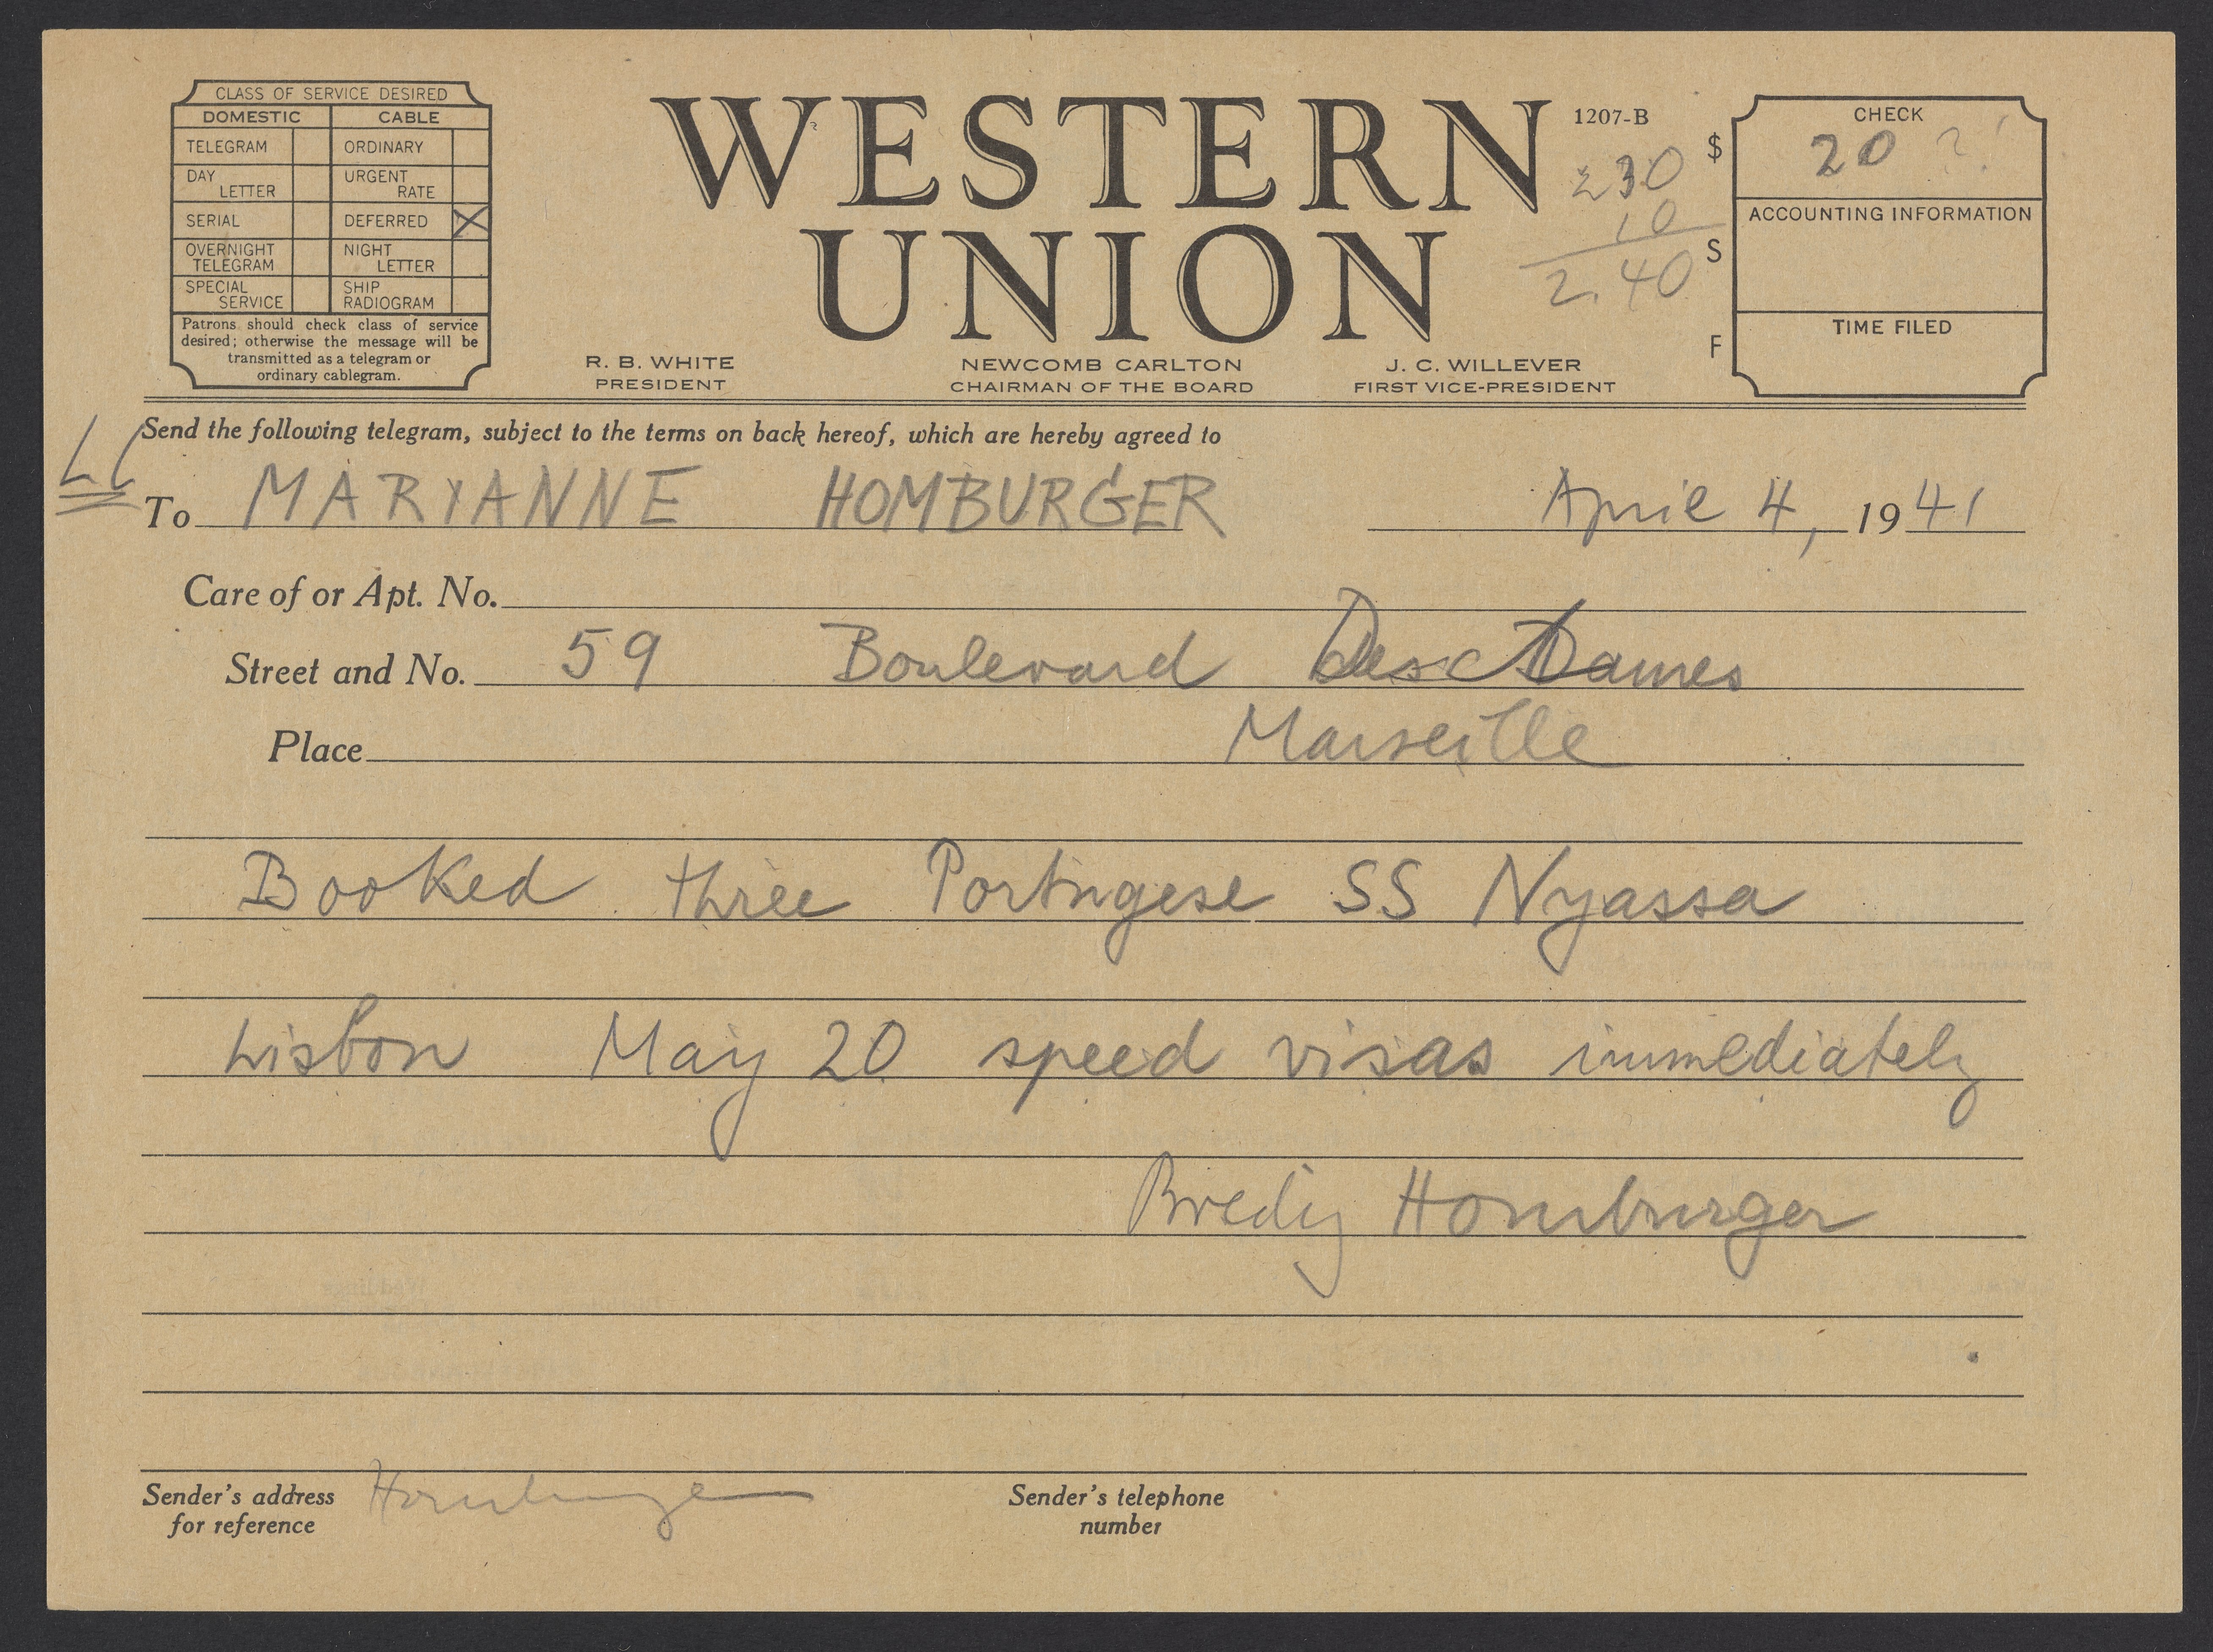 CLASS OF SERVICE DESIRED
DOMESTIC CABLE
TELEGRAM ORDINARY
DAY LETTER URGENT RATE
SERIAL DEFERRED X
OVERNIGHT TELEGRAM NIGHT LETTER
SPECIAL SERVICE SHIP RADIOGRAM
Patrons should check class of service
desired; otherwise the message will be
transmitted as a telegram or
ordinary cablegram.
WESTERN
UNION
1207-B
230
10
2.40
$
S
F
CHECK
20
ACCOUNTING INFORMATION
TIME FILED
R. B. WHITE
PRESIDENT
NEWCOMB CARLTON
CHAIRMAN OF THE BOARD
J. C. WILLEVER
FIRST VICE-PRESIDENT
Send the following telegram, subject to the terms on back hereof, which are hereby agreed to
LC
To MARYANNE HOMBURGER April 4, 1941
Care of or Apt. No.
Street and No. 59 Boulevard Des Dames
Place Marseille
Booked three Portugese SS Nyassa
Lisbon May 20 speed visas immediately
Bredig Homburger
Sender's address
for reference
Homburger
Sender's telephone
number